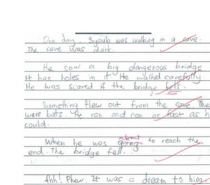 One day, was walking in a cave.
The cave was dark.
He saw a big dangerous bridge
It has holes in it He walked carefully
He was scared if the bridge fell.
Something flew out from the cave They
were bats. He ran and ran as fast as he
could.
When he was about to reach the
end. The bridge fell.
Ahh! Phew. It was a dream to him